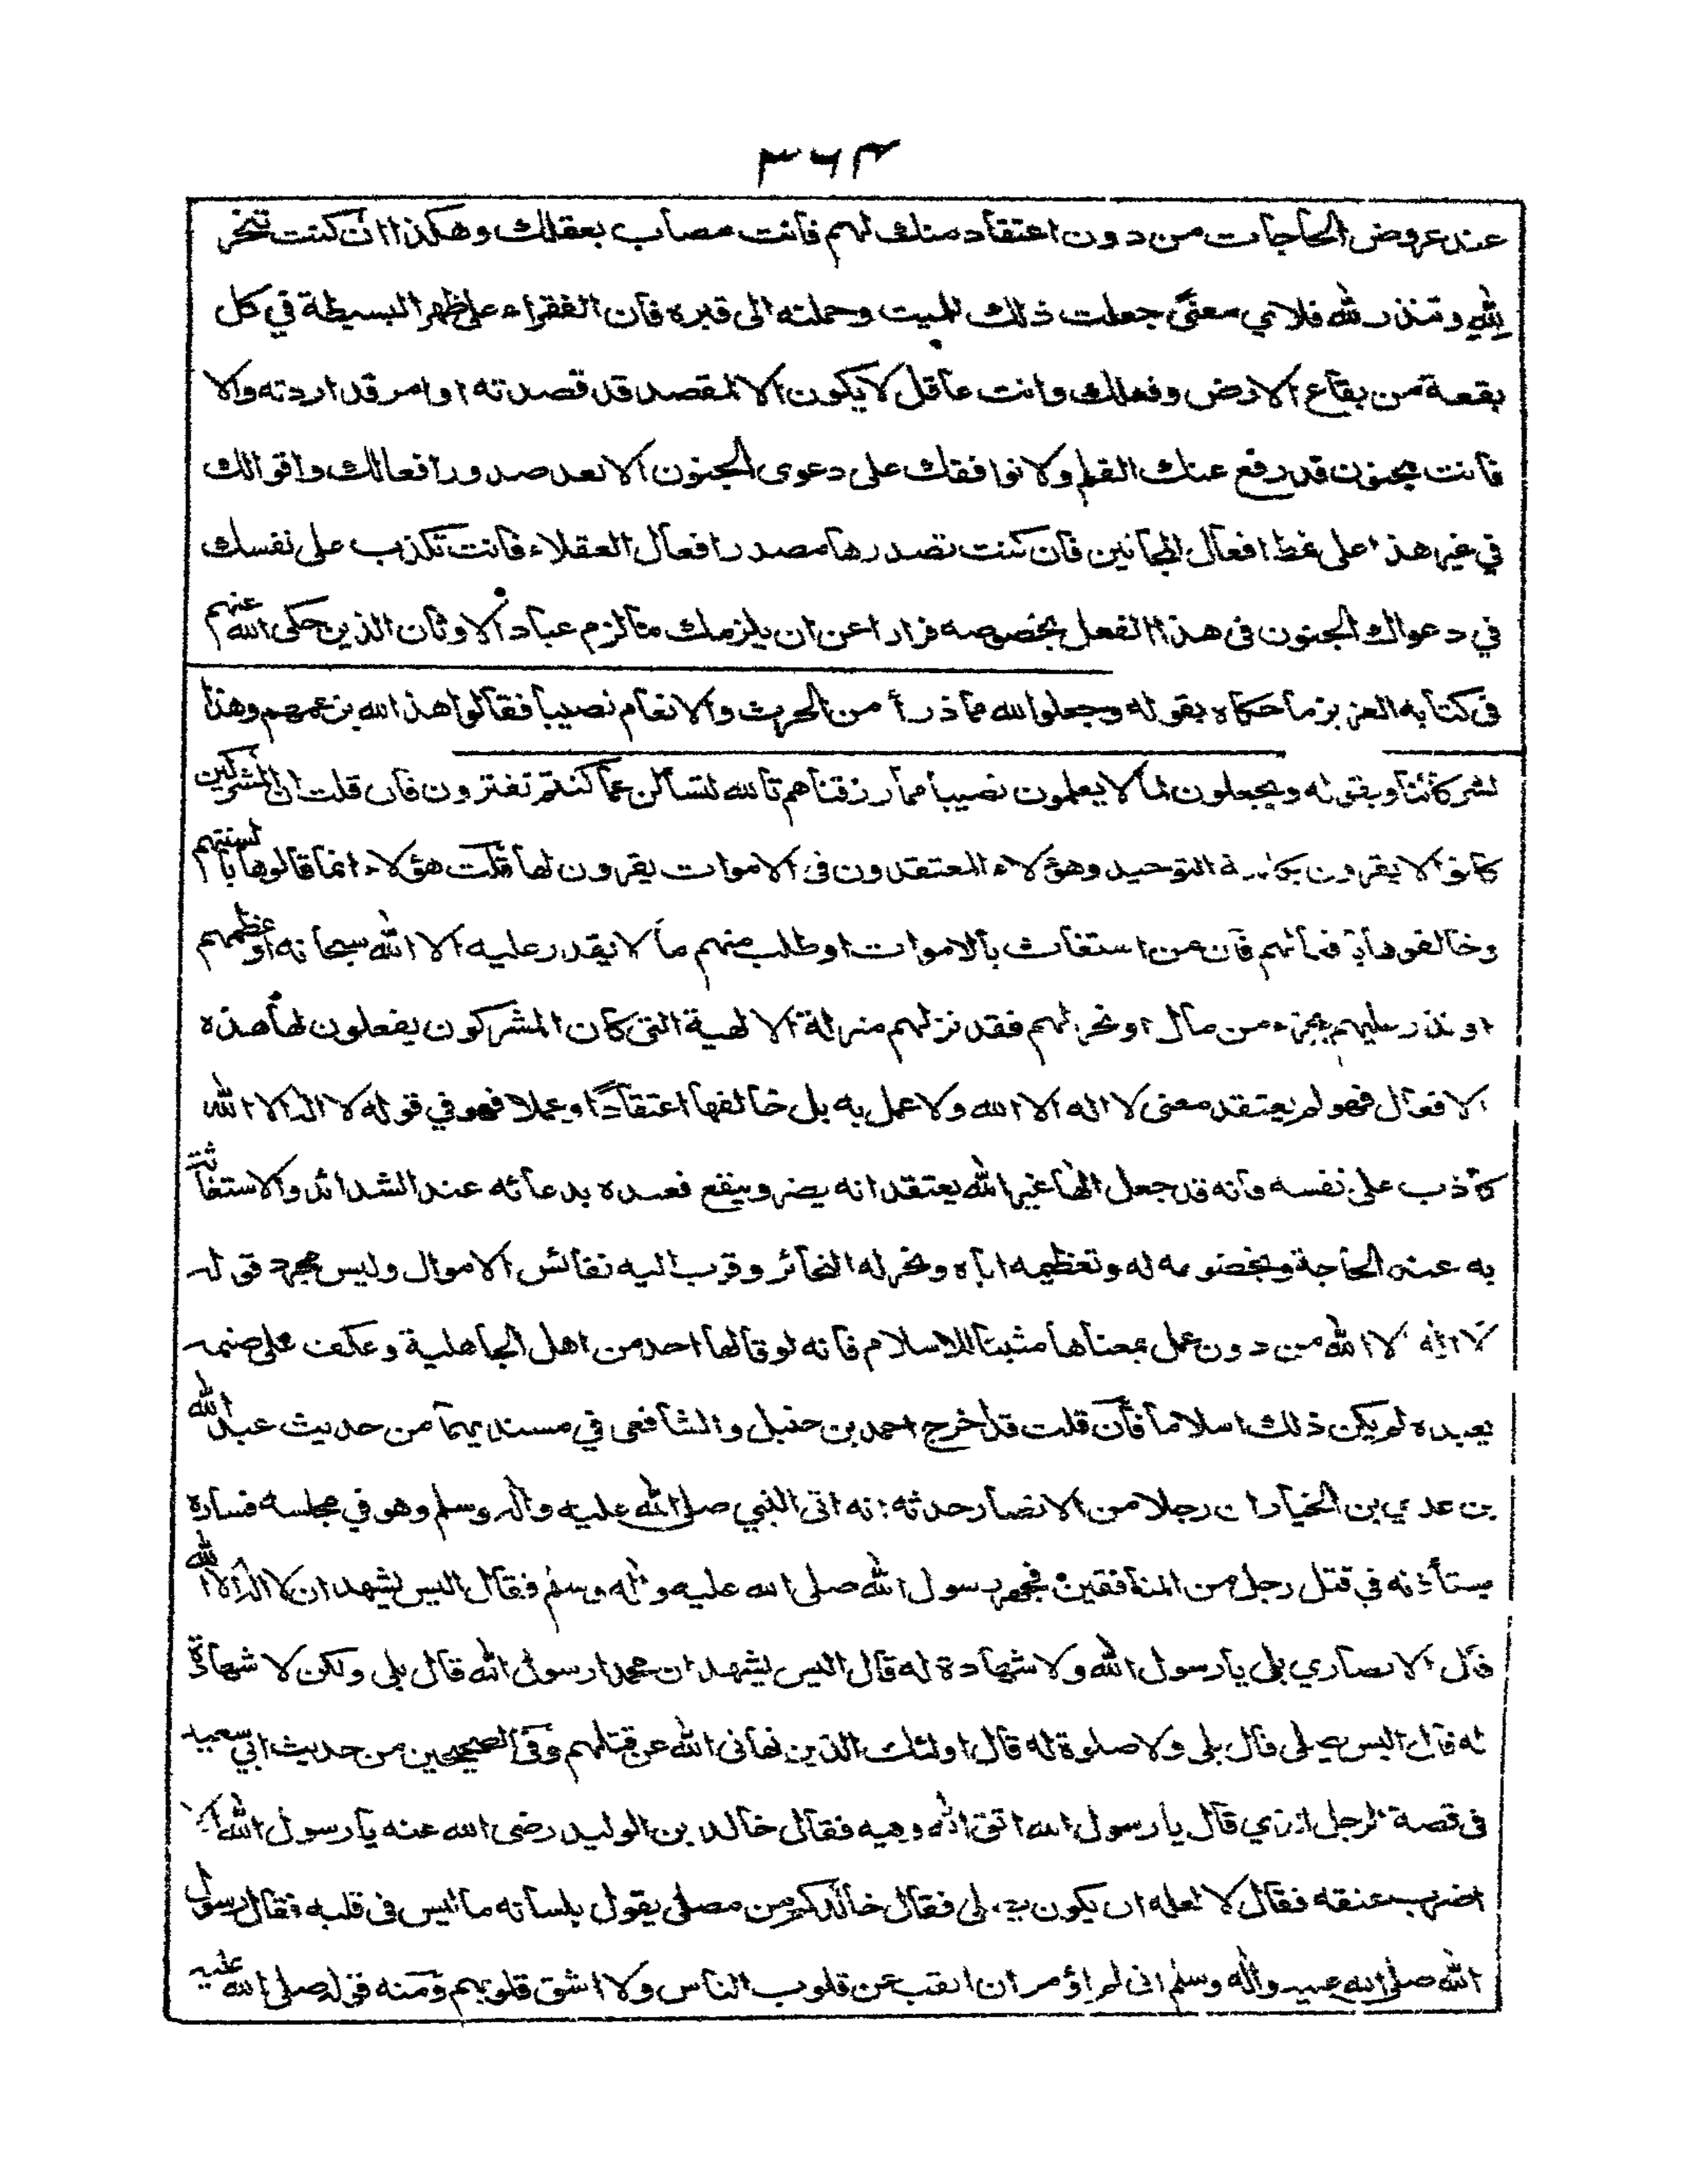 ٣٦٤
عند عروض الحاجات من دون اعتقاد منك لهم فانت مصاب بعقلك وهكذا ان كنت تنحر
لله وتنذر لله فلاي معنى جعلت ذلك للميت وحملته الى قبره فان الفقراء على ظهر البسيطة في كل
بقعة من بقاع الارض وفعلك وانت عاقل لا يكون الا لمقصد قد قصدته او امر قد اردته والا
فانت مجنون قد رفع عنك القلم ولا نوافقك على دعوى الجنون الا بعد صدور افعالك واقوالك
في غير هذا على نمط افعال المجانين فان كنت تصدرها مصدر افعال العقلاء فانت تكذب على نفسك
في دعواك الجنون فى هذا الفعل بخصوصه فرارا عن ان يلزمك ما لزم عباد الاوثان الذين حكى الله عنهم
فى كتابه العزيز ما حكاه بقوله وجعلوا لله مما ذرأ من الحرث والانعام نصيبا فقالوا هذا لله بزعمهم وهذا
لشركائنا وبقوله ويجعلون لما لا يعلمون نصيبا مما رزقناهم تالله لتسألن عما كنتم تفترون فان قلت ان المشركين
كانوا لا يقرون بكلمة التوحيد وهؤلاء المعتقدون فى الاموات يقرون لها قلت هؤلاء انما قالوها بالسنتهم
وخالفوها بافعالهم فان من استغاث بالاموات او طلب منهم ما لا يقدر عليه الا الله سبحانه او عظمهم
او نذر عليهم بجزء من مال او نحر لهم فقد نزلهم منزلة الالهية التى كان المشركون يفعلون لها هذه
الافعال فهو لم يعتقد معنى لا اله الا الله ولا عمل به بل خالفها اعتقادا وعملا فهو في قوله لا اله الا الله
كاذب على نفسه فانه قد جعل الها غير الله يعتقد انه يضر وينفع فعبده بدعائه عند الشدائد والاستغاثة
به عند الحاجة وبخضوعه له وتعظيمه اياه ونحر له النحائر وقرب اليه نفائس الاموال وليس مجرد قوله
لا اله الا الله من دون عمل بمعناها مثبتا للاسلام فانه لو قالها احد من اهل الجاهلية وعكف على صنمه
يعبده لم يكن ذلك اسلاما فان قلت قد اخرج احمد بن حنبل والشافعى في مسنديهما من حديث عبد الله
بن عدي بن الخيار ان رجلا من الانصار حدثه انه اتى النبي صلى الله عليه واله وسلم وهو في مجلسه فساره
يستأذنه في قتل رجل من المنافقين فجهر رسول الله صلى الله عليه واله وسلم فقال اليس يشهد ان لا اله الا الله
قال الانصاري بلى يا رسول الله ولا شهادة له قال اليس يشهد ان محمدا رسول الله قال بلى ولكن لا شهادة
له قال اليس يصلى قال بلى ولا صلوة له قال اولئك الذين نهانى الله عن قتلهم وفى الصحيحين من حديث ابي سعيد
فى قصة الرجل الذي قال يا رسول الله اتق الله وفيه فقال خالد بن الوليد رضى الله عنه يا رسول الله الا
اضرب عنقه فقال لا لعله ان يكون يصلى فقال خالد كم من مصلى يقول بلسانه ما ليس فى قلبه فقال رسول
الله صلى الله عليه واله وسلم انى لم اؤمر ان انقب عن قلوب الناس ولا اشق قلوبهم ومنه قوله صلى الله عليه